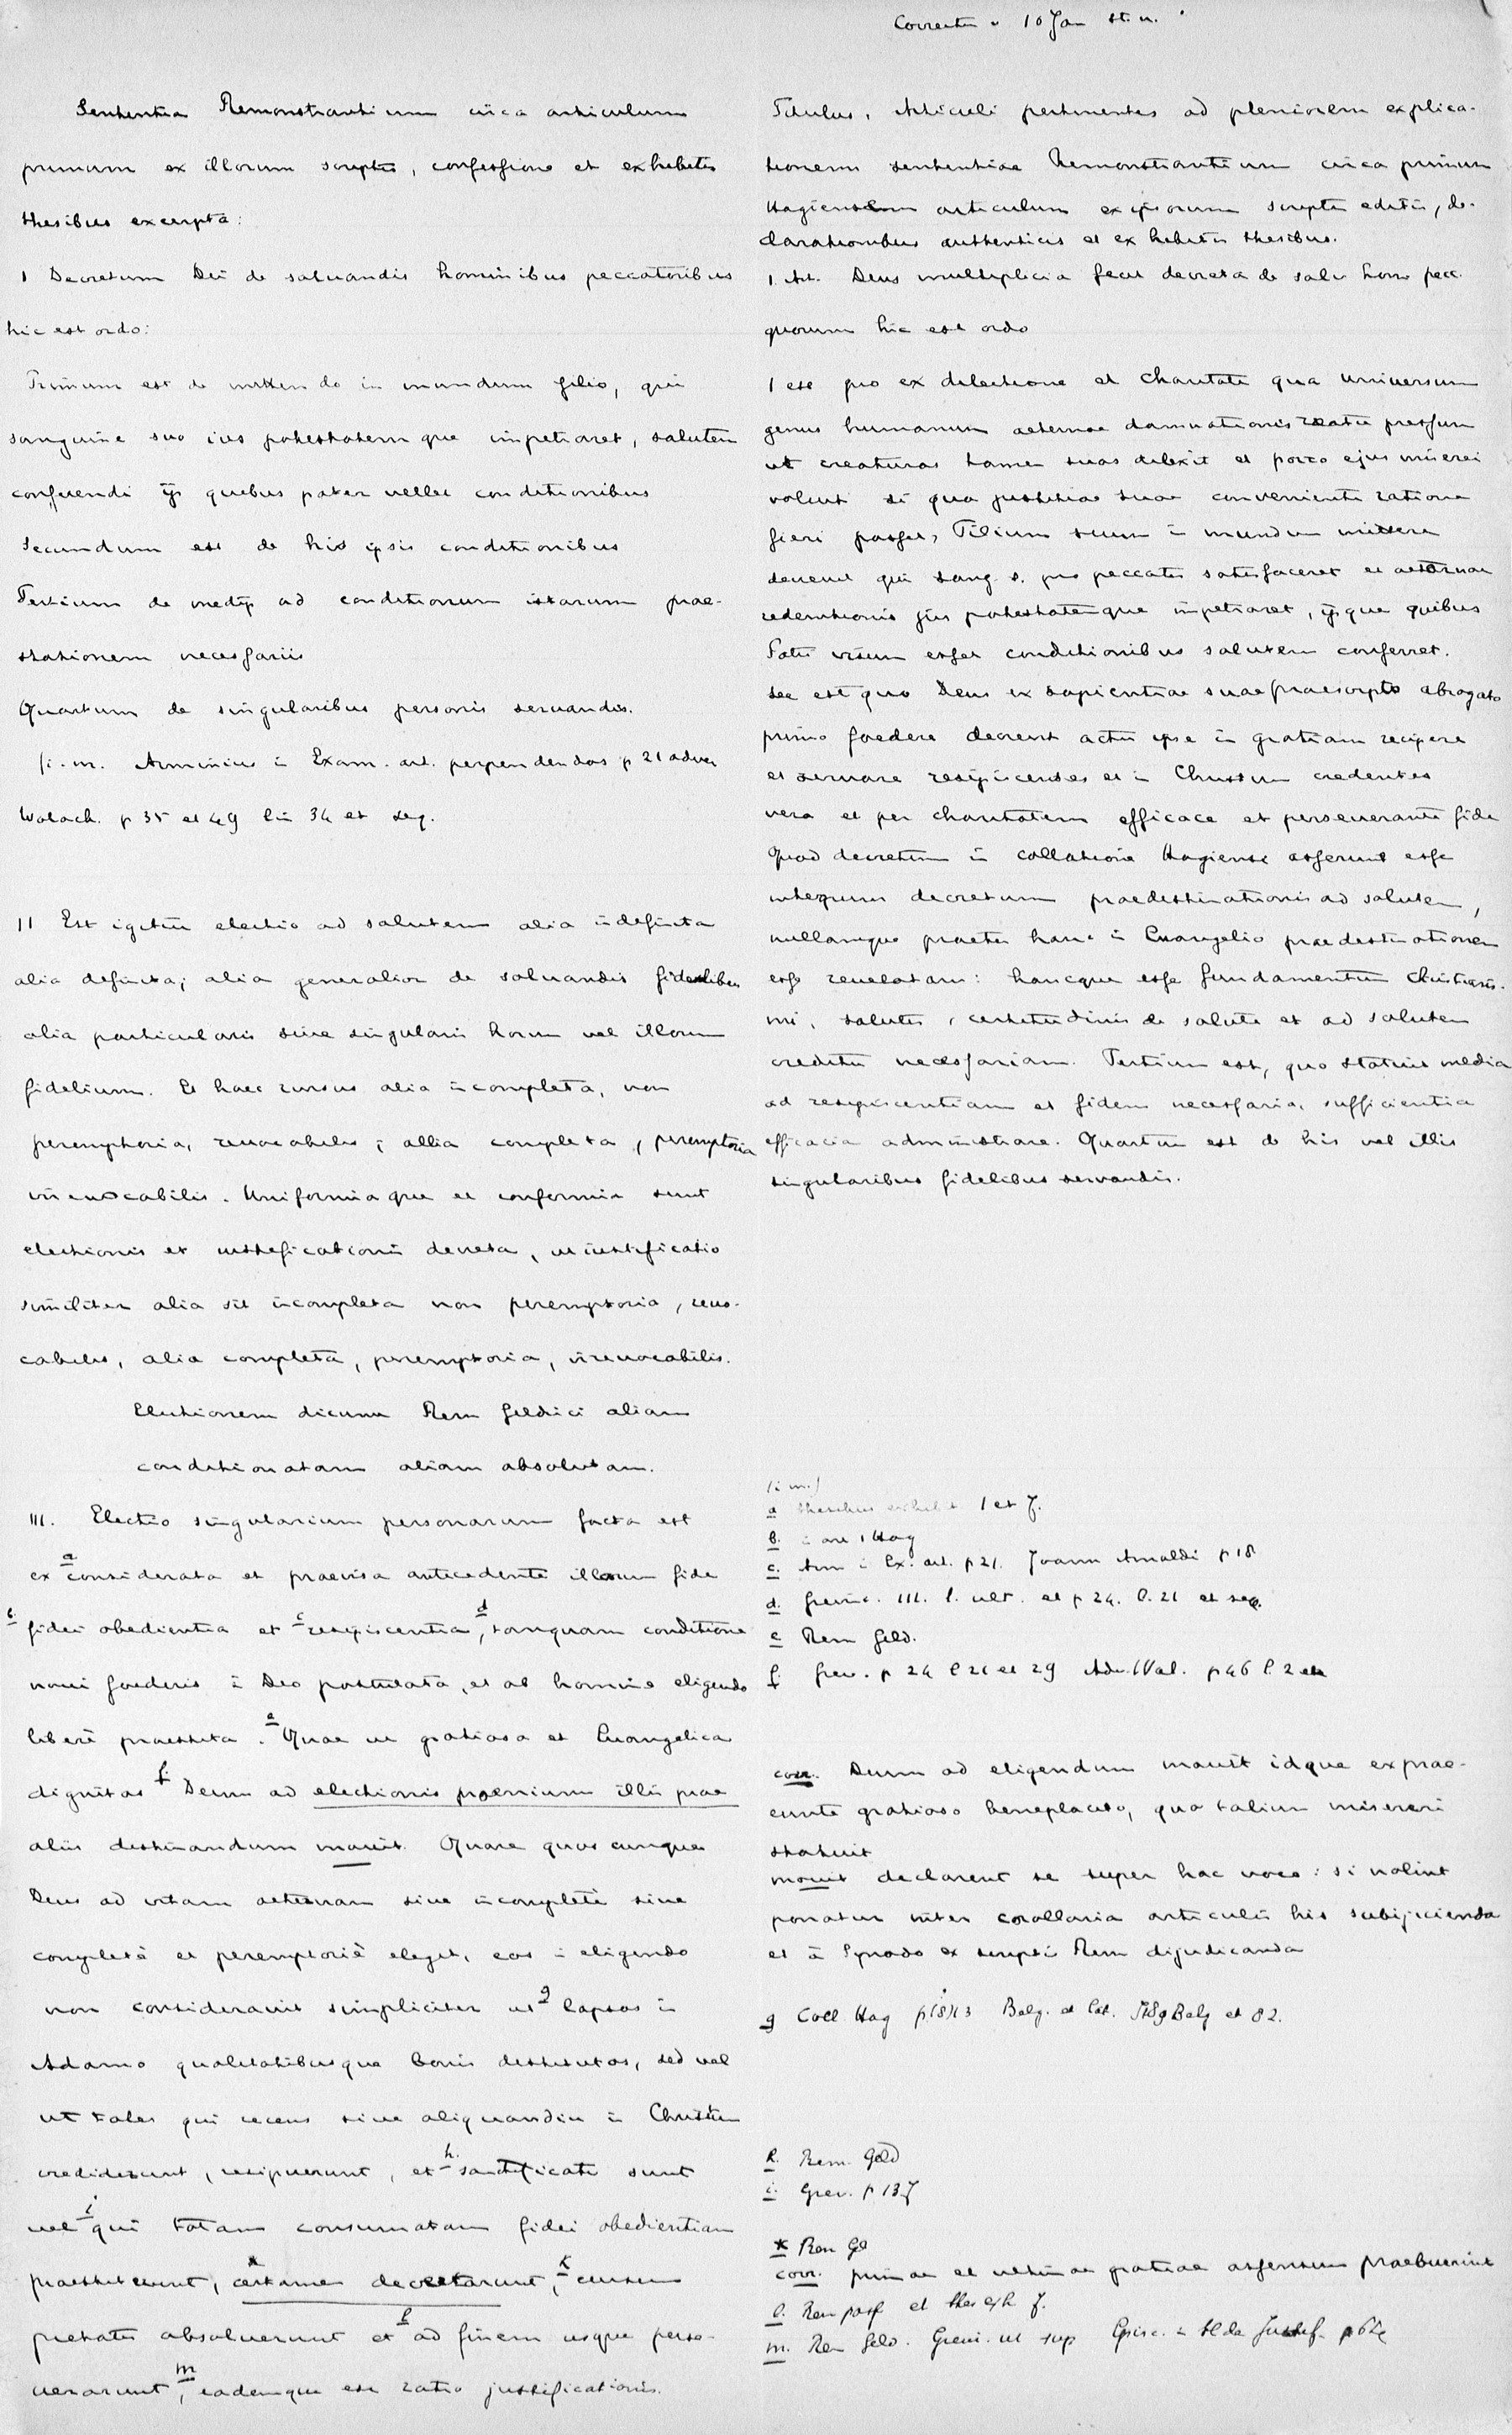 Correctu v 10 Jan st. n.
Sententia Remonstrantium circa articulum
primum ex illorum scriptis, confessione et exhibitis
thesibus excerpta:
1 Decretum Dei de saluandis hominibus peccatoribus
hic est ordo:
Primum est de mittendo in mundum filio, qui
sanguine suo ius potestatemque impetraret, salutem
conferendi ijs quibus pater vellet conditionibus
Secundum est de his ipsis conditionibus
Tertium de medijs ad conditionum istarum prae-
stationem necessariis
Quartum de singularibus personis seruandis.
/i. m. Arminius in Exam. art. perpendendos p 21 adver
Walach. p 35 et 49 lin 34 et seq.
II Est igitur electio ad salutem alia indefinita
alia definita; alia generalior de saluandis fidelibus
alia particularis siue singularis horum vel illorum
fidelium. Et haec rursus alia incompleta, non
peremptoria, reuocabilis; allia completa, peremptoria
irreuocabilis. Uniformiaque et conformia sunt
electionis et iustificationis decreta, ut iustificatio
similiter alia sit incompleta non peremptoria, reuo-
cabilis, alia completa, peremptoria, irreuocabilis.
Electionem dicunt Rem Geldrici aliam
conditionatam aliam absolutam.
III. Electio singularium personarum facta est
ex a considerata et praevisa antecedente illorum fide
b. fidei obedientia et c resipiscentia d, tanquam conditione
noui foederis a Deo postulata, et ab homine eligendo
libere praestita. e Quae ut gratiosa et Euangelica
dignitas f. Deum ad electionis praemium illis prae
aliis destinandum mouit. Quare quoscunque
Deus ad vitam aeternam siue incompletè siue
completè et peremptoriè eleget, eos in eligendo
non considerauit simpliciter ut g lapsos in
Adamo qualitatibusque bonis destitutos, sed vel
ut tales qui recens siue aliquandiu in Christum
crediderunt, resipuerunt, et h. sanctificati sunt
vel i qui totam consumatam fidei obedientiam
praestiterunt, * certamen decertarunt, k cursum
pietatis absoluerunt et l ad finem usque perse-
uerarunt m, eademque est ratio justificationis.
Titulus. Articuli pertinentes ad pleniorem explica-
tionem sententiae Remonstrantium circa primum
Hagiensem articulum ex ipsorum scriptis editis, de-
clarationibus authenticis et exhibitis thesibus.
1. Art. Deus multiplicia fecit decreta de salv hom pecc.
quorum hic est ordo
1 est pro ex dilectione et charitate qua universum
genus humanum aeternae damnationis reatu pressum
ut creaturas tamen suas dilexit et porro ejus misereri
voluit si qua justitiae suae conveniente ratione
fieri posset, Filium suum in mundum mittere
decreuit qui sang. s. pro peccatis satisfaceret et aeternae
redemtionis jus potestatemque impetraret, ijsque quibus
Patri visum esset conditionibus salutem conferret.
Sec est quo Deus ex sapientiae suae praescripto abrogato
primo foedere decreuit actu ipse in gratiam recipere
et seruare resipiscentes et in Christum credentes
vera et per charitatem efficace et perseuerante fide
Quod decretum in collatione Hagiensi asserunt esse
integrum decretum praedestinationis ad salutem,
nullamque praeter hanc in Euangelio praedestinationem
esse reuelatam: hancque esse fundamentum Christianis-
mi, salutis, certitudinis de salute et ad salutem
creditu necessariam. Tertium est, quo statuit media
ad resipiscentiam et fidem necessaria, sufficientia
efficacia administrare. Quartum est de his vel illis
singularibus fidelibus seruandis.
/i m./
a thesibus exhibit 1 et 7.
b. in art 1 Hag
c. Arm in Ex. art. p 21. Joann Arnoldi p 18
d. Grevinc. 111. l. ult. et p 24. l. 21 et seq.
e Rem Geld.
f. Grev. p 24 l 21 et 29 Adv. Wal. p 46 l. 2 etc
corr. Deum ad eligendum mouit idque ex prae-
eunte gratioso beneplacito, quo talium misereri
statuit
mouit declarent se super hac voce: si nolint
ponatur inter corollaria articulis his subijcienda
et a Synodo ex scriptis Rem dijudicanda
g Coll. Hag p. (8)(3 Belg. et Lat. 5189 Belg et 82.
h. Rem. Geld
i. Grev. p 137
* Rem Gel
corr. primae et ultimae gratiae assensum praebuerint
l. Rem pass et thes exh 7.
m. Rem Geld. Grevi. ut sup Episc. in th de Justif. p 62